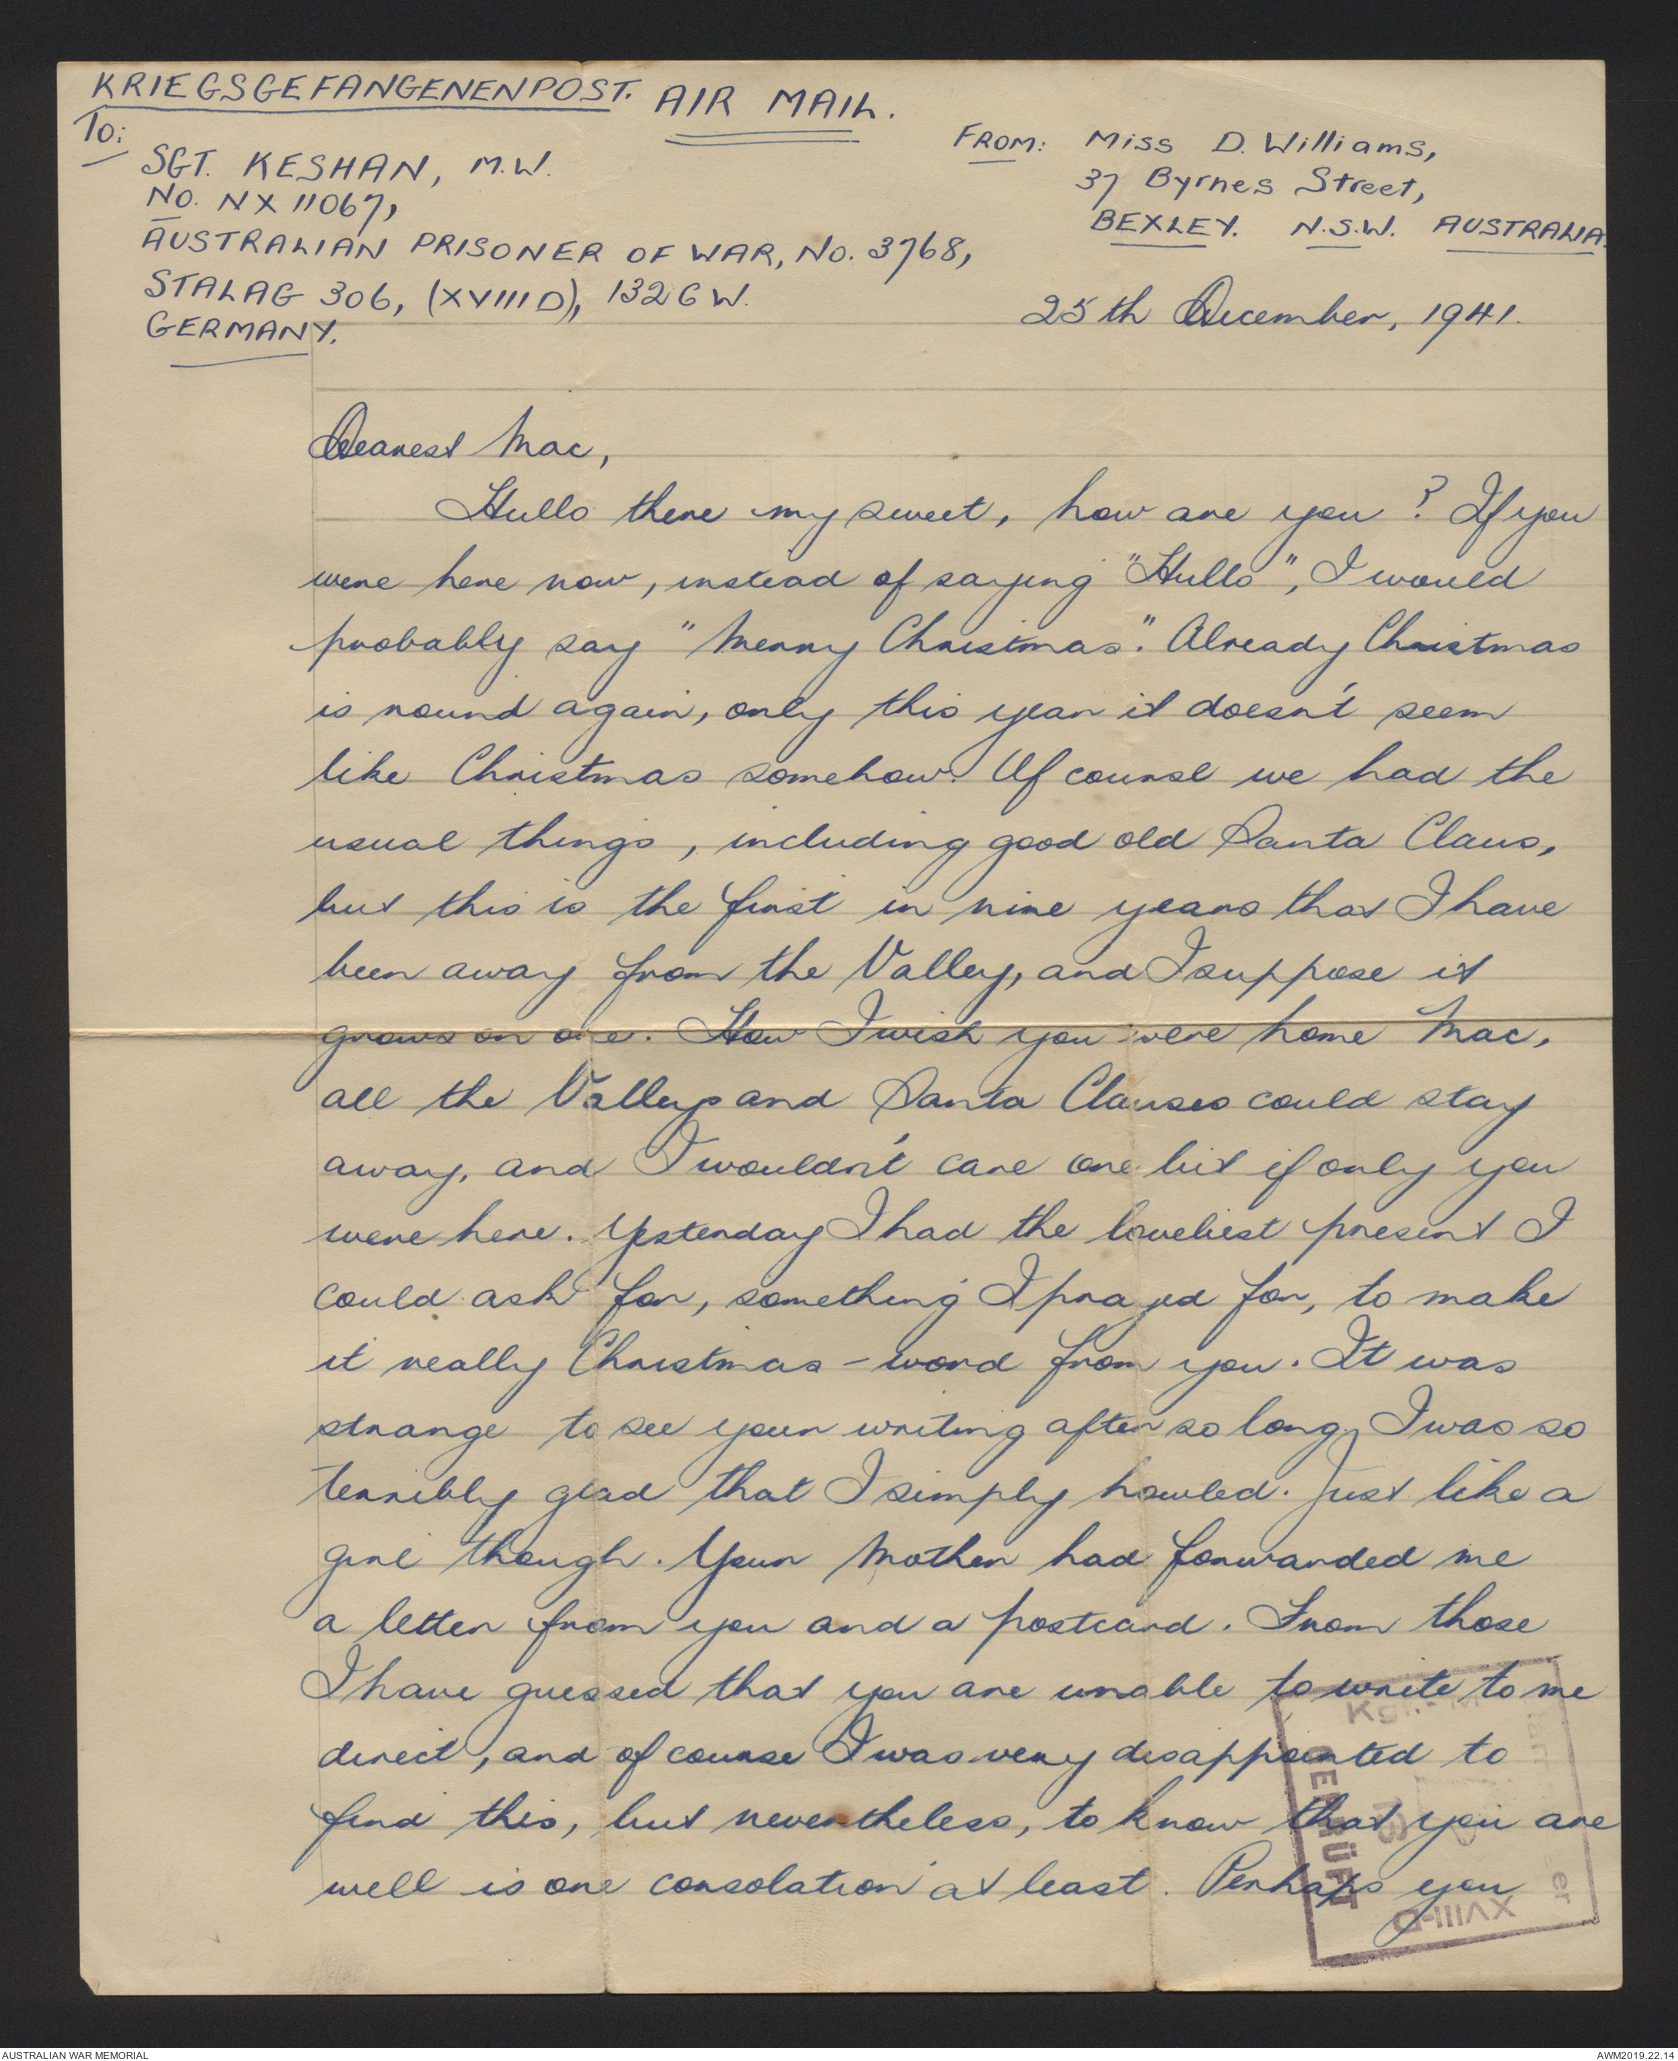 KRIEGSGEFANGENENPOST. AIR MAIL.
To:
SGT. KESHAN, M.W.
No. NX 11067,
AUSTRALIAN PRISONER OF WAR, No. 3768,
STALAG 306, (XVIII D), 1326 W.
GERMANY.
FROM: Miss D. Williams,
37 Byrnes Street,
BEXLEY. N.S.W. AUSTRALIA.
25th December, 1941.
Dearest Mac,
Hullo there my sweet, how are you? If you
were here now, instead of saying "Hullo", I would
probably say "Merry Christmas". Already Christmas
is round again, only this year it doesn't seem
like Christmas somehow. Of course we had the
usual things, including good old Santa Claus,
but this is the first in nine years that I have
been away from the Valley, and I suppose it
grows on one. How I wish you were home Mac,
all the Valleys and Santa Clauses could stay
away, and I wouldn't care one bit if only you
were here. Yesterday I had the loveliest present I
could ask for, something I prayed for, to make
it really Christmas - word from you. It was
strange to see your writing after so long, I was so
terribly glad that I simply howled. Just like a
girl though. Your Mother had forwarded me
a letter from you and a postcard. From those
I have guessed that you are unable to write to me
direct, and of course I was very disappointed to
find this, but nevertheless, to know that you are
well is one consolation at least. Perhaps you
GEPRÜFT
XVIII-D
AUSTRALIAN WAR MEMORIAL
AWM2019.22.14